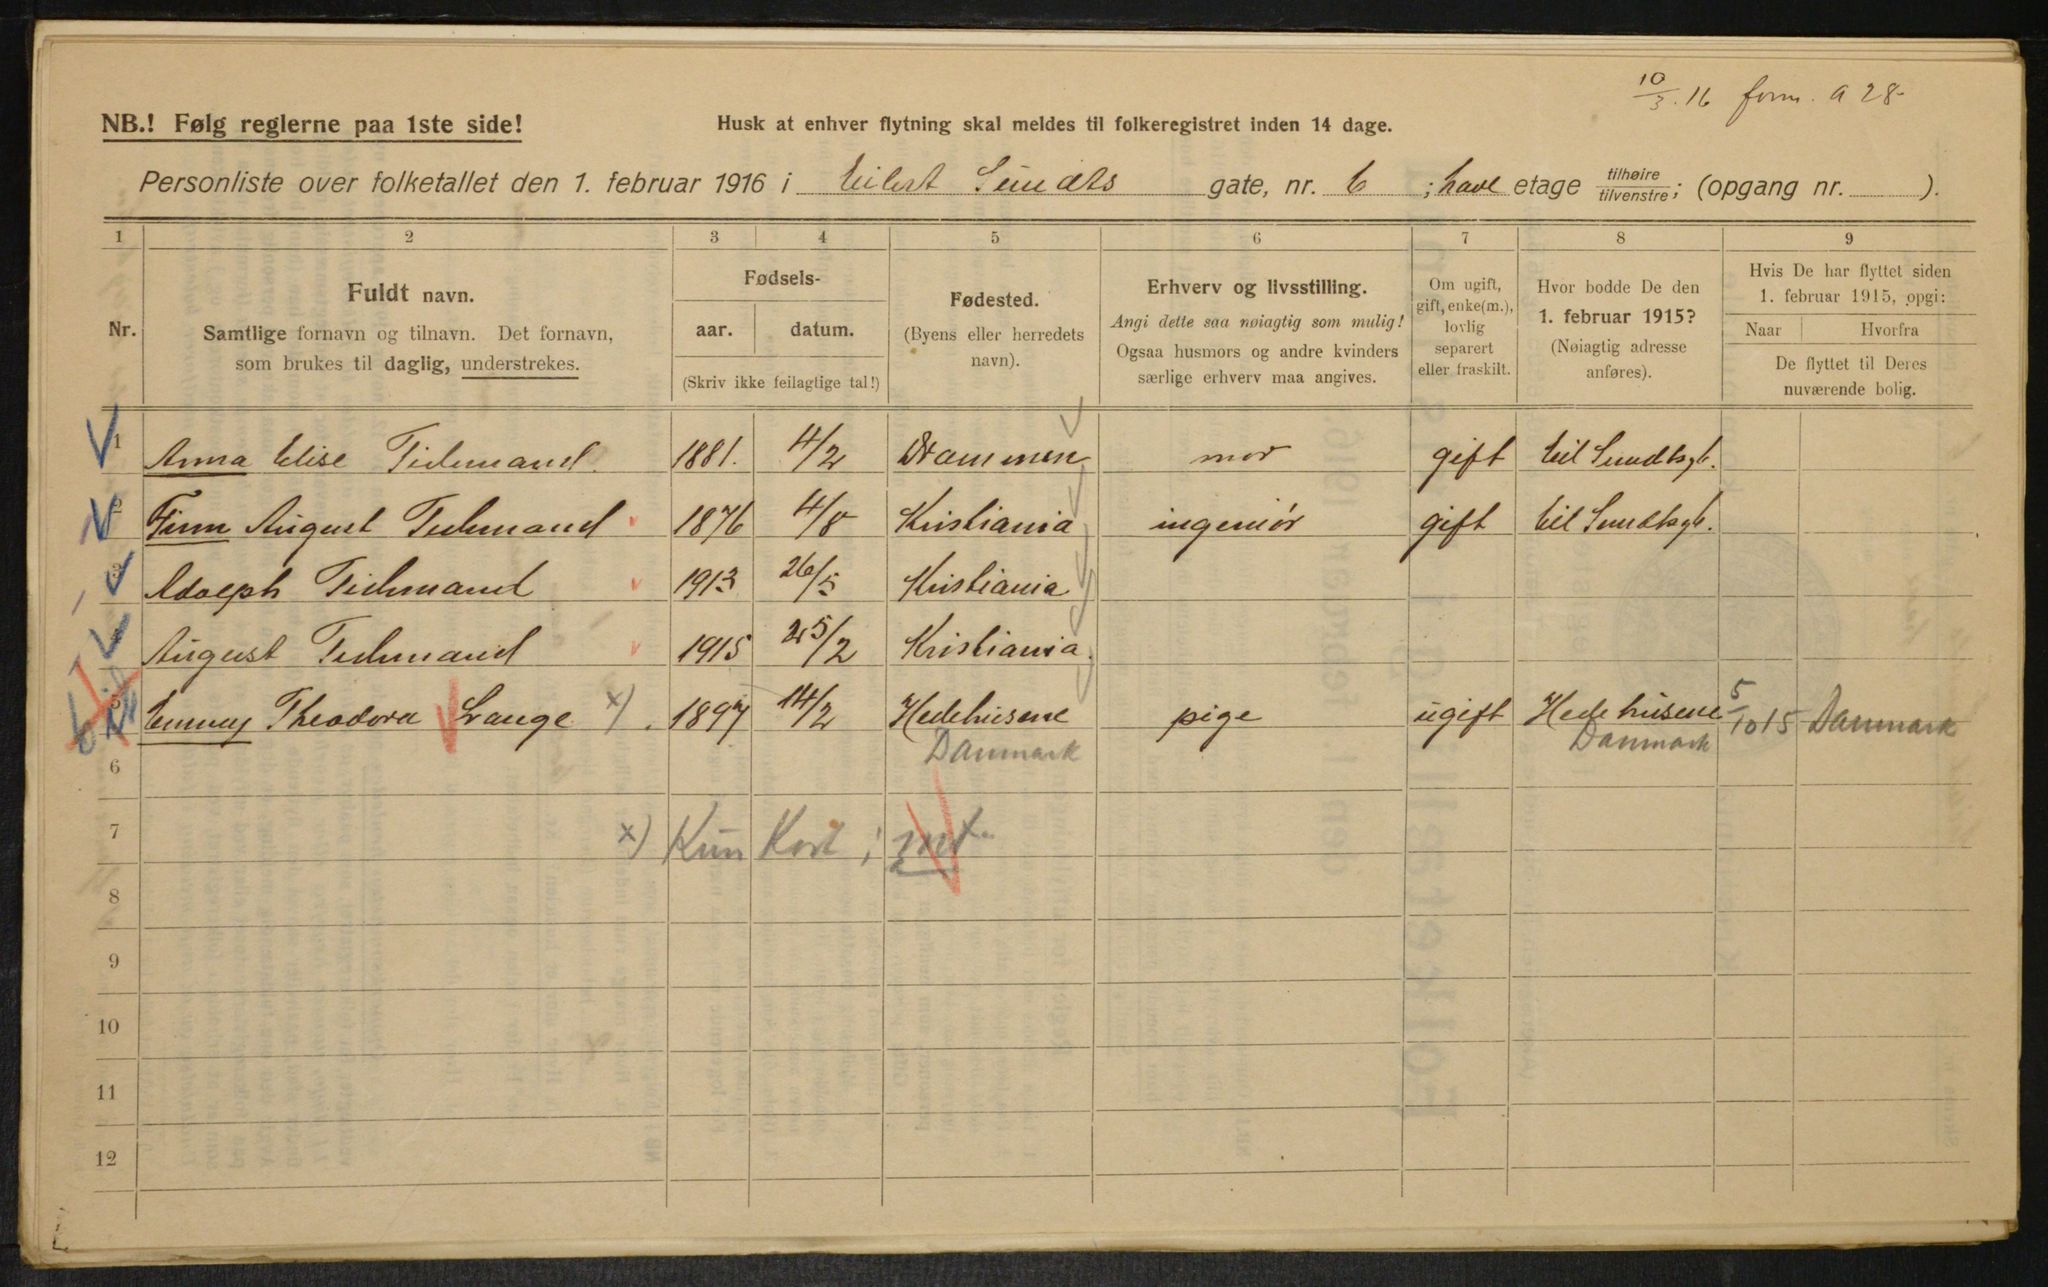 10/3.16 form. a 28
NB.! Følg reglerne paa 1ste side!
Husk at enhver flytning skal meldes til folkeregistret inden 14 dage.
Personliste over folketallet den 1. februar 1916 i Eilert Sundts gate, nr. 6 ; have etage tilhøire/tilvenstre; (opgang nr. ).
1 2 3 4 5 6 7 8 9
Nr.
Fuldt navn.
Samtlige fornavn og tilnavn. Det fornavn,
som brukes til daglig, understrekes.
Fødsels-
aar. datum.
(Skriv ikke feilagtige tal!)
Fødested.
(Byens eller herredets
navn).
Erhverv og livsstilling.
Angi dette saa nøiagtig som mulig!
Ogsaa husmors og andre kvinders
særlige erhverv maa angives.
Om ugift,
gift, enke(m.),
lovlig
separert
eller fraskilt.
Hvor bodde De den
1. februar 1915?
(Nøiagtig adresse
anføres).
Hvis De har flyttet siden
1. februar 1915, opgi:
Naar Hvorfra
De flyttet til Deres
nuværende bolig.
1 Anna Elise Tidemand. 1881. 4/2 Drammen mor gift Eil Sundtsg 6.
2 Finn August Tidemand 1876 4/8 Kristiania ingeniör gift Eil Sundtsg 6.
3 Adolph Tidemand 1913 26/5 Kristiania
4 August Tidemand 1915 25/2 Kristiania.
5 Emmy Theodora Lange x). 1897 14/2 Hedehusene pige ugift Hedehusene 5/10 15 Danmark
Danmark Danmark
6
7 x) Kun Kort i
8
9
10
11
12